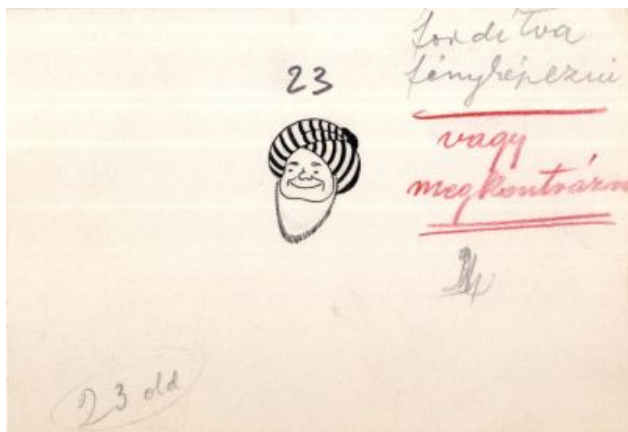 23
fordítva
fényképezni
vagy
megkontrázn
23 old